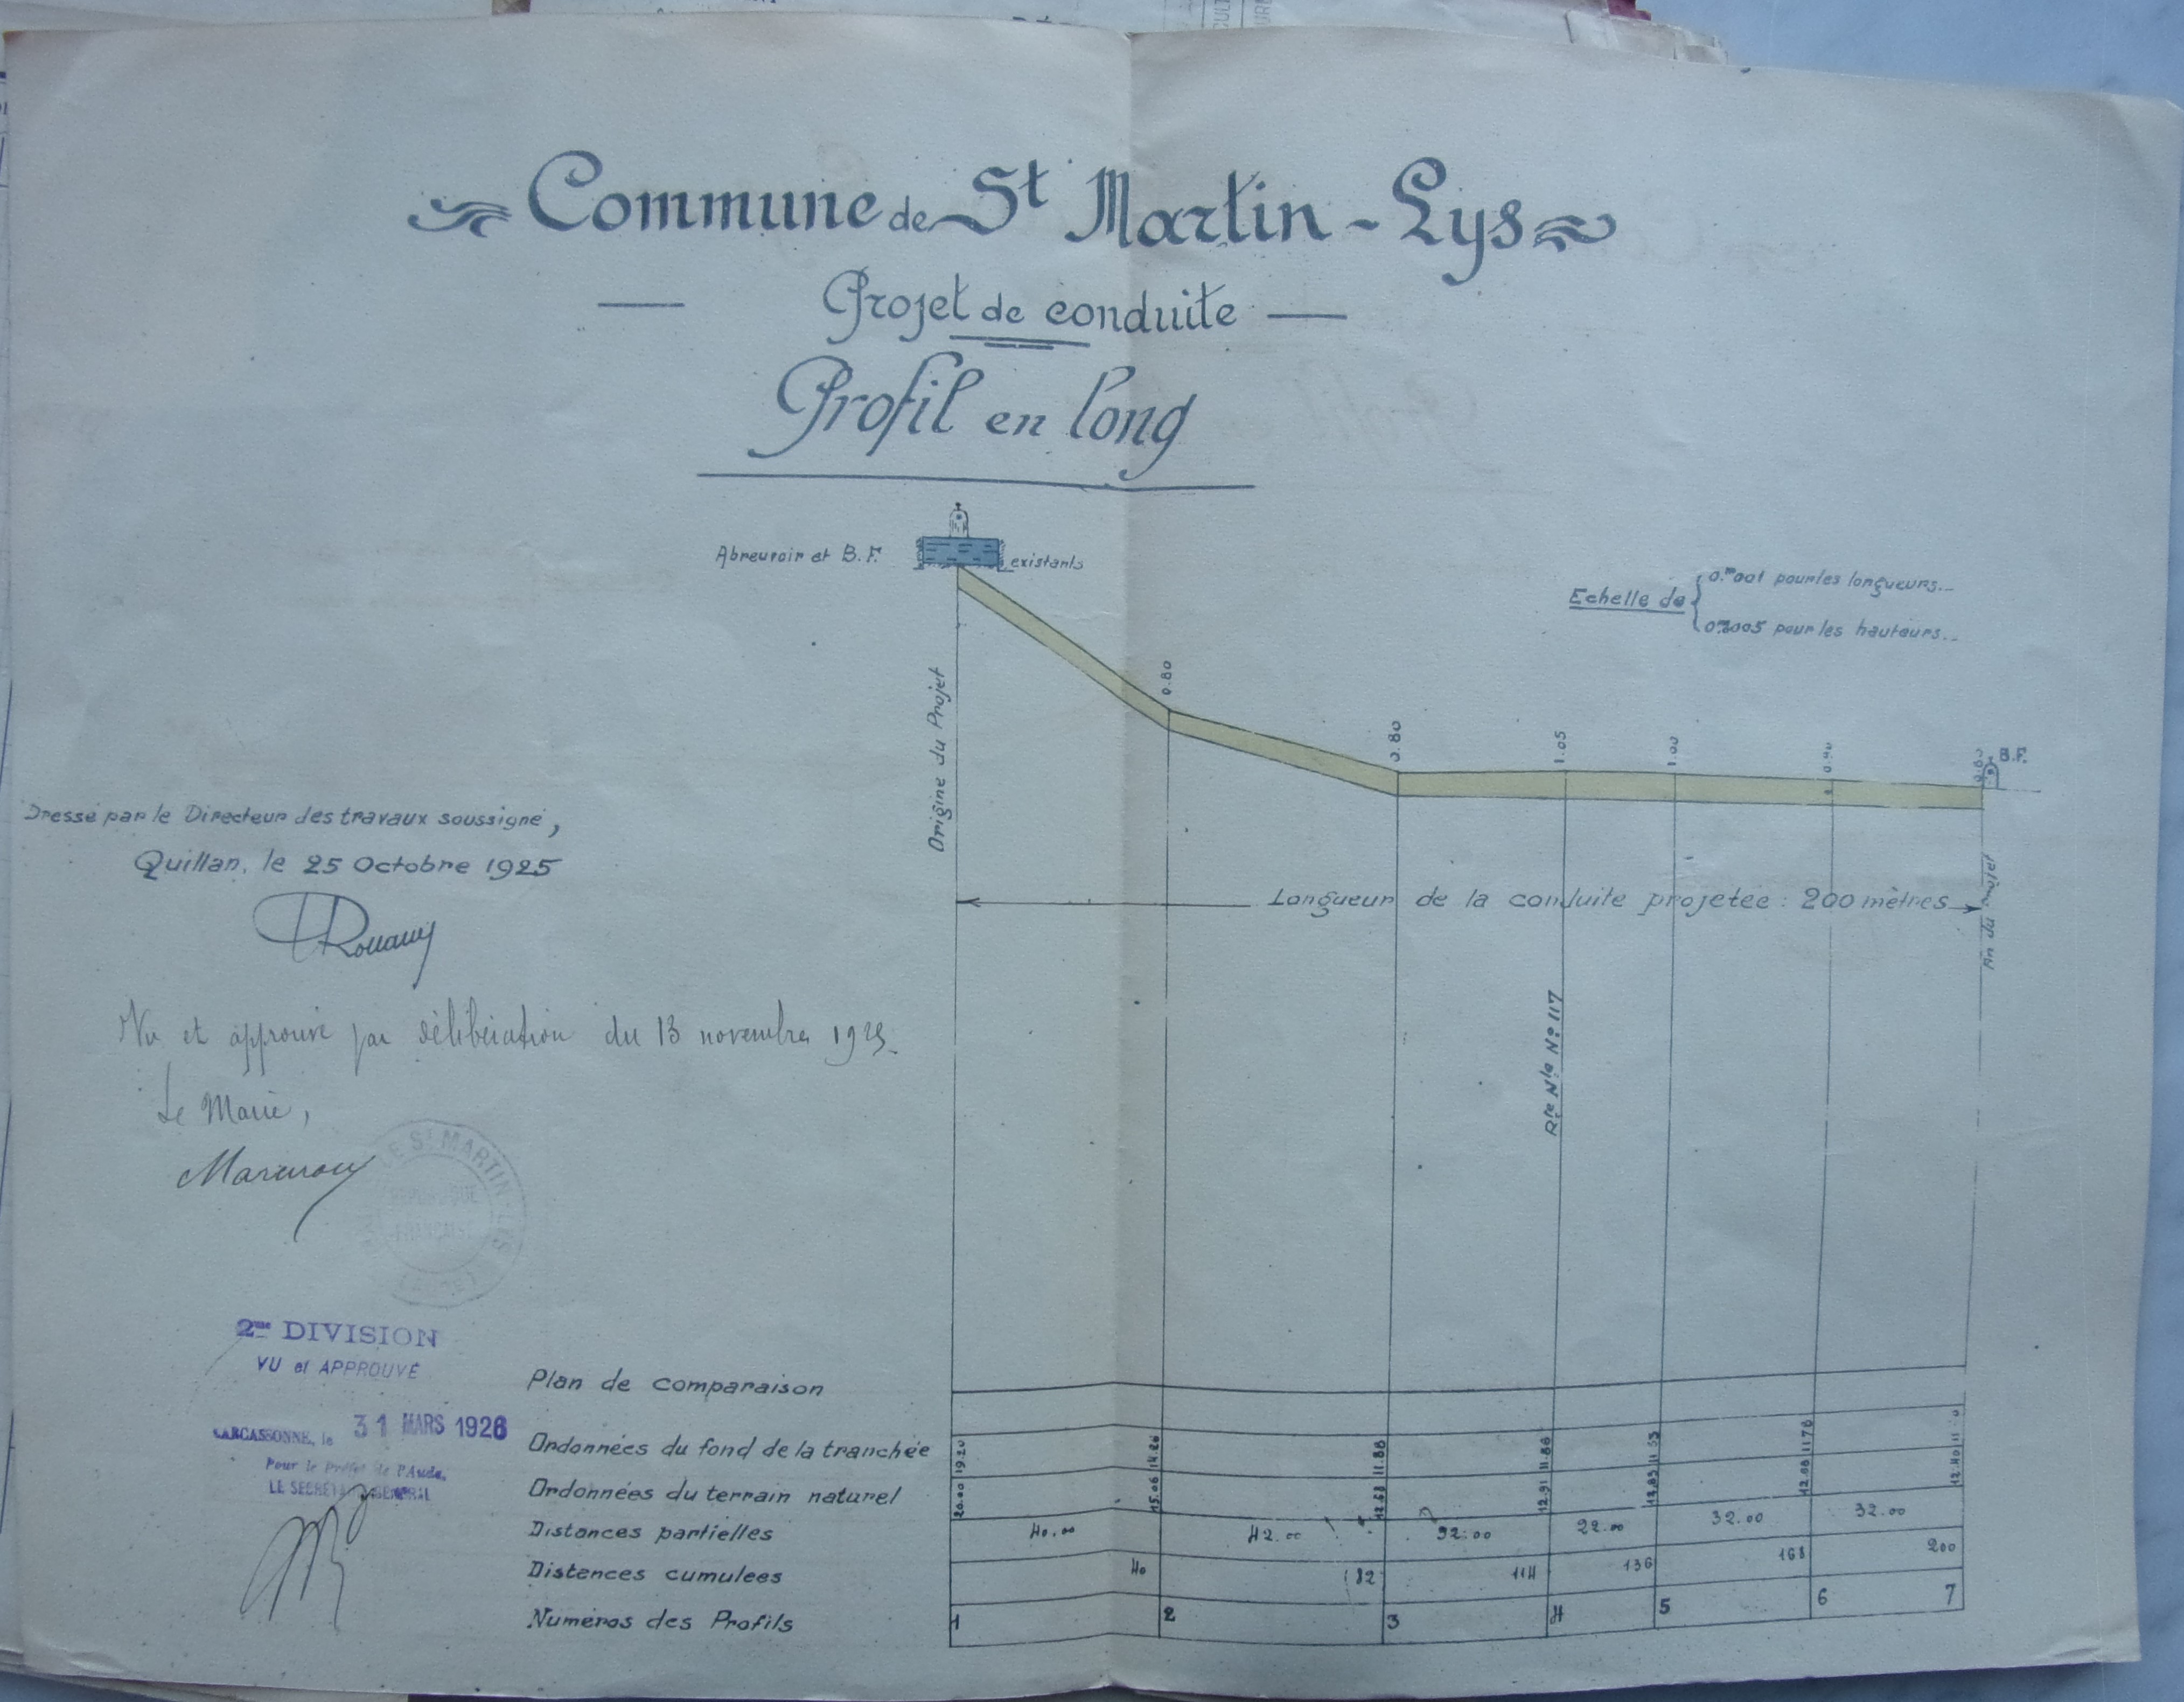 Commune de St Martin-Lys
Projet de conduite
Profil en long
Abreuvoir et B.F. existants
Echelle de
0.m001 pour les longueurs..
0m005 pour les hauteurs..
Origine du Projet
0.80
0.80
1.05
1.00
0.80
B.F.
Longueur de la conduite projetée : 200 mètres
Rte Nle No 117
du Projet
Dressé par le Directeur des travaux soussigné,
Quillan, le 25 Octobre 1925
Vu et approuvé par délibération du 13 novembre 1925.
Le Maire,
DE ST MARTIN-LYS
REPUBLIQUE
FRANÇAISE
(AUDE)
2me DIVISION
VU et APPROUVÉ
CARCASSONNE, le 31 MARS 1926
Pour le Préfet de l'Aude,
LE SECRÉTAIRE GÉNÉRAL
Plan de comparaison
Ordonnées du fond de la tranchée 19.20 14.26 11.88 11.86 11.78
Ordonnées du terrain naturel 20.00 15.06 12.68 12.91 12.83 12.68 12.40
Distances partielles 40.00 42.00 32.00 22.00 32.00 32.00
Distances cumulees 40 82 114 136 168 200
Numéros des Profils 1 2 3 4 5 6 7